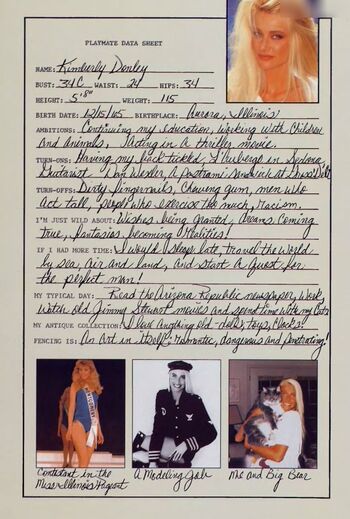 PLAYMATE DATA SHEET
NAME: Kimberly Donley
BUST: 34C WAIST: 24 HIPS: 34
HEIGHT: 5'8" WEIGHT: 115
BIRTH DATE: 12/15/65 BIRTHPLACE: Aurora, Illinois
AMBITIONS: Continuing my education, working with Children
and Animals, Acting in a thriller movie.
TURN-ONS: Having my back tickled, in Sedona,
Dan Wexler, A pastrami sandwich at
TURN-OFFS: Dirty fingernails, Chewing gum, men who
Act tall, people who exercise too much, racism.
I'M JUST WILD ABOUT: Wishes being granted, dreams coming
true, fantasies becoming realities!
IF I HAD MORE TIME: I would sleep late, travel the world
by sea, air and land, and start a quest for
the perfect man!
MY TYPICAL DAY: Read the Arizona Republic newspaper, work,
watch old Jimmy Stewart movies and spend time with my Cats
MY ANTIQUE COLLECTION: I love anything old - dolls, toys, clocks!
FENCING IS: An Art in itself, romantic, dangerous and penetrating!
Contestant in the
Miss Illinois Pageant
A Modeling Job
Me and Big Bear